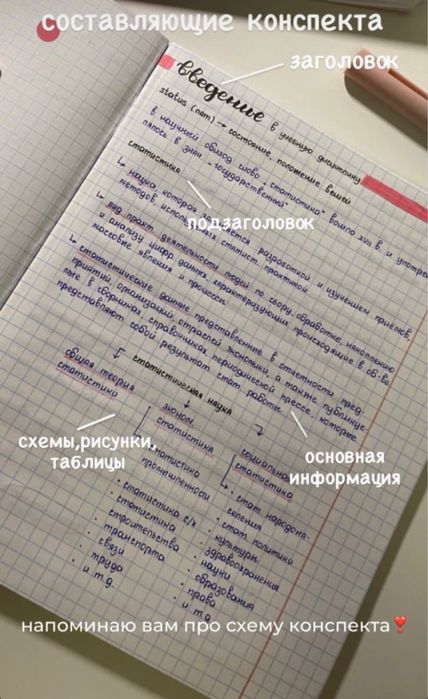 составляющие конспекта
заголовок
введение в учебную дисциплину
status (лат) → состояние, положение вещей
в научный обиход слово „статистика" вошло XVIII в. и употреб
лялось в знач. „государственный"
статистика
подзаголовок
↳ наука, которая занимается разработкой и изучением приёмов,
методов, используемых статист. практикой
↳ вид практ. деятельности людей по сбору, обработке, накоплению
и анализу цифр. данных, характеризующих происходящие в об-ве
массовые явления и процессы
↳ статистические данные представленные в отчетности пред-
приятий организаций, отраслей экономики, а также публикуе-
мые в сборниках, справочниках периодической прессе, которые
представляют собой результат стат. работы
статистическая наука
общая теория
статистики
эконом.
статистика
социальн
статистика
схемы,рисунки,
таблицы
основная
информация
статистика
промышленности
· статистика с/х
· статистика
строительства
· транспорта
· связи
· труда
· и т.д.
· стат. народона-
селения
· стат. политики
· культуры
· здравоохранения
· науки
· образования
· права
· и т.д.
напоминаю вам про схему конспекта❣️